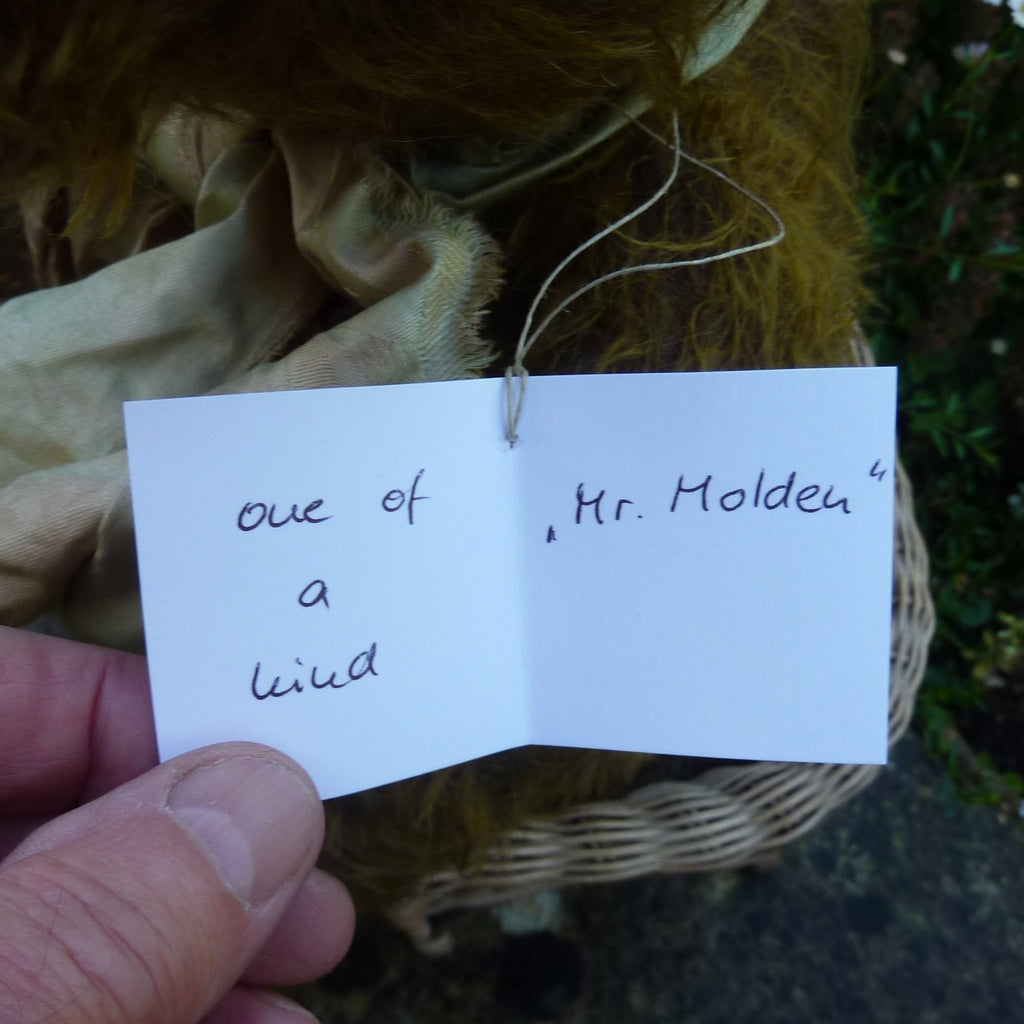 one of
a
kind
„Mr. Molden“